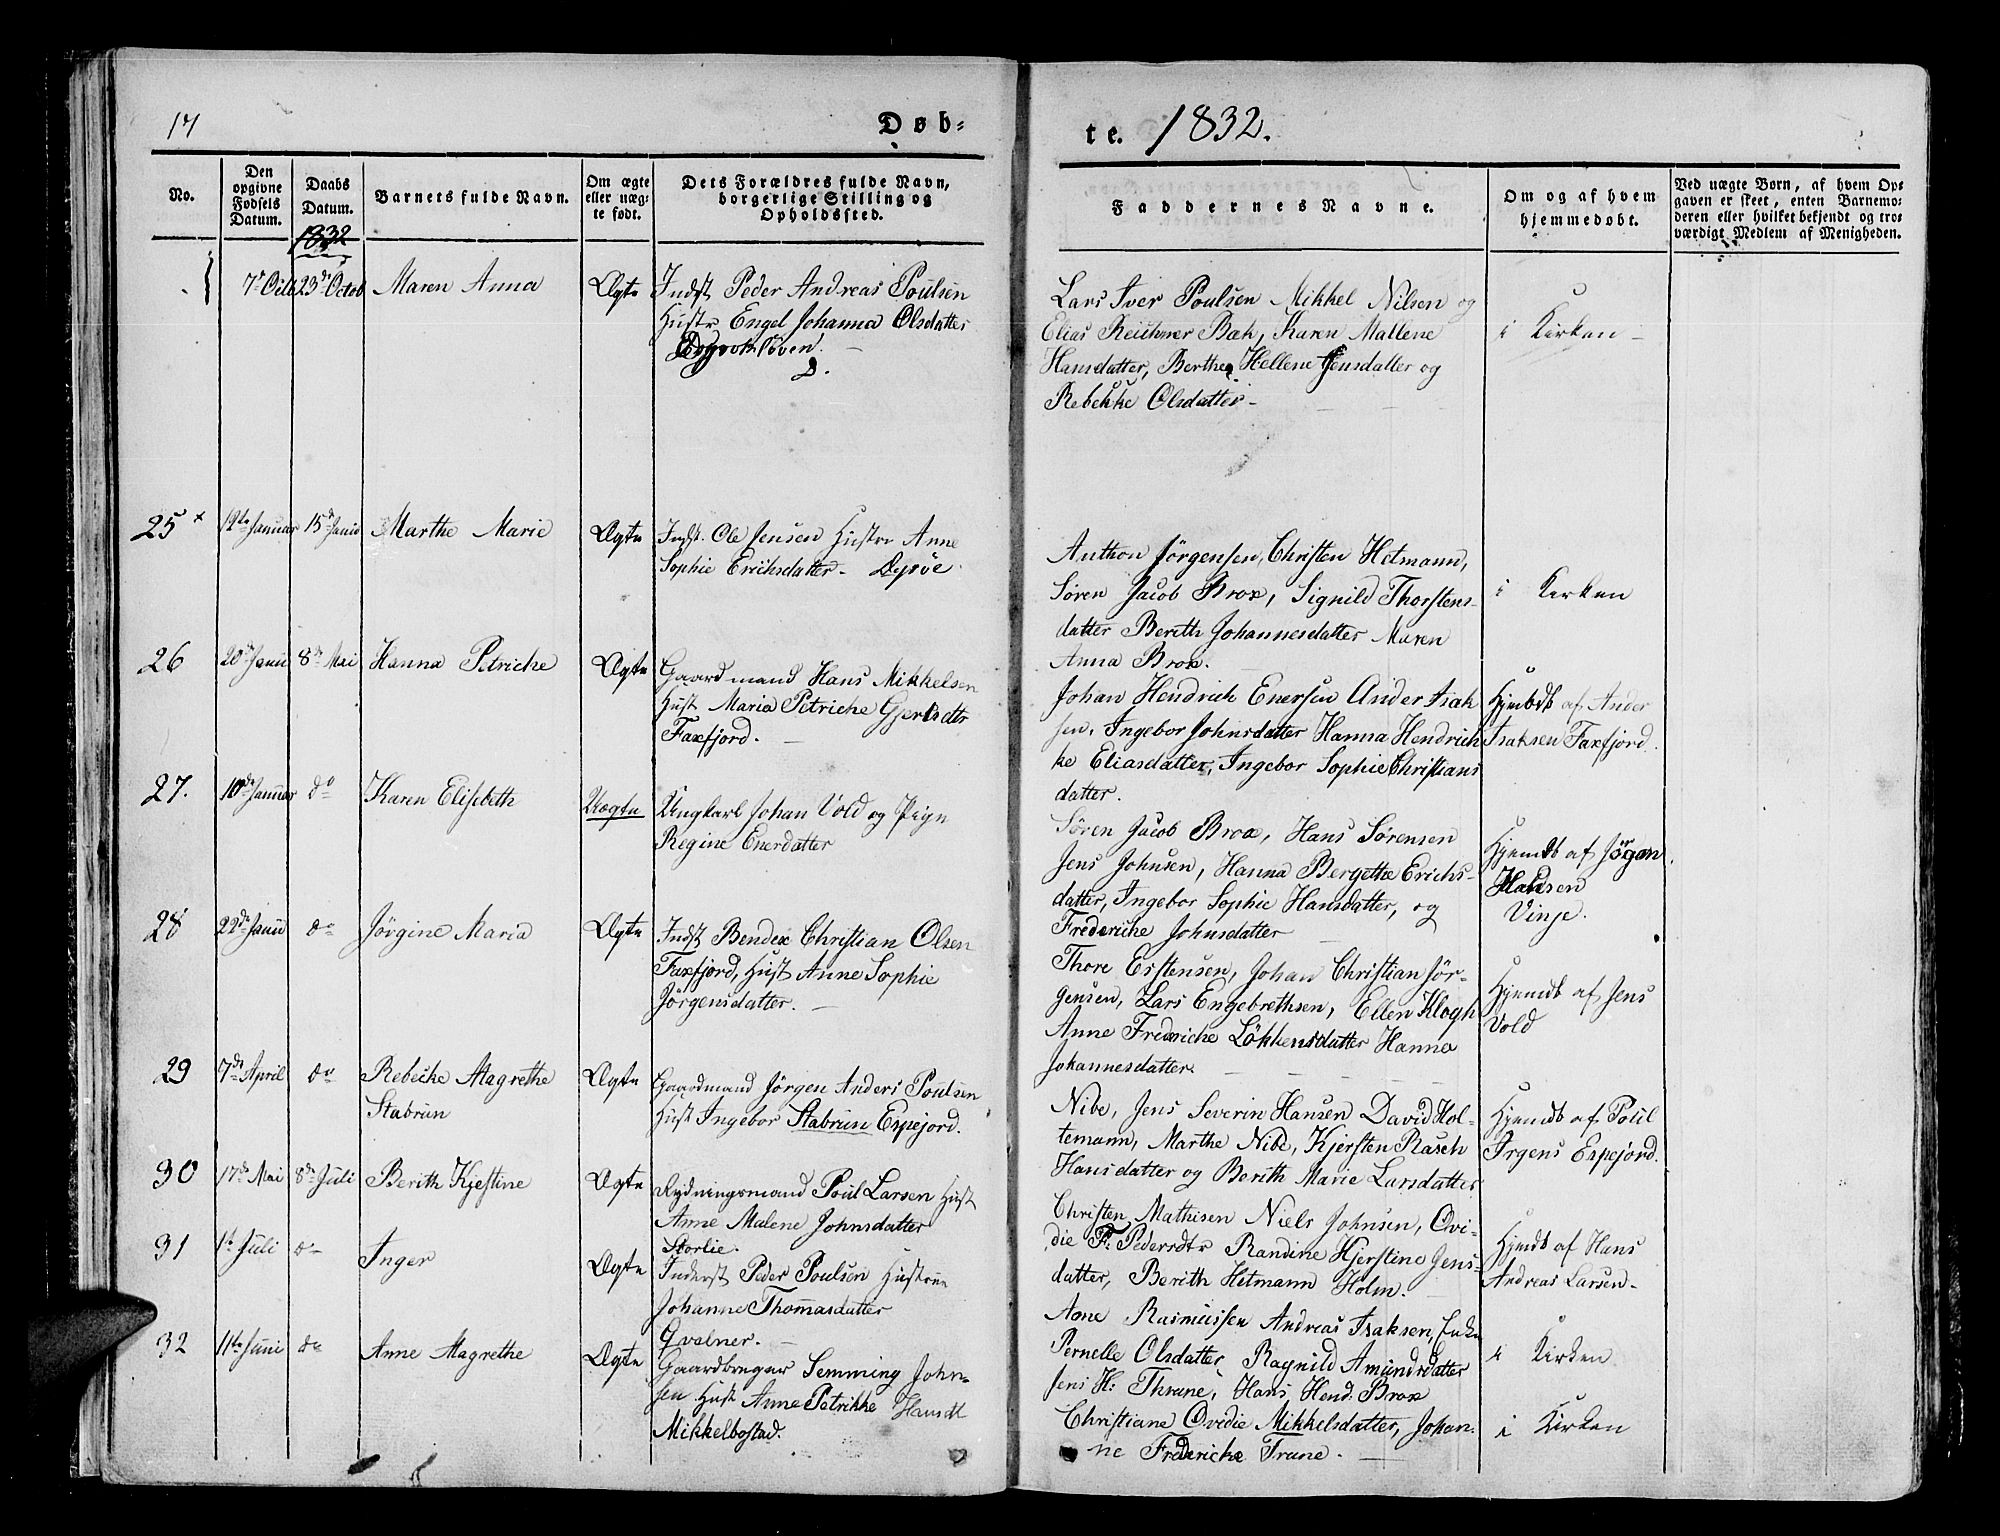 17
Døb-
te. 1832.
No.
Den opgivne Fødsels Datum.
Daabs Datum.
Barnets fulde Navn.
Om ægte eller uæg-te født.
Dets Forældres fulde Navn, borgerlige Stilling og Opholdssted.
Faddernes Navne.
Om og af hvem hjemmedøbt.
Ved uægte Børn, af hvem Op-gaven er skeet, enten Barnemo-deren eller hvilket bekjendt og tro-værdigt Medlem af Menigheden.
1832
23de Octob Maren Anna Ægte
Indst Peder Andreas Poulsen
Hustr Engel Johanna Olsdatter
Lars Iver Poulsen Mikkel Nilsen og
Elias Reichner Bæk, Karen Mallene
Hansdatter, Berthe Hellene Jensdatter og
Rebekke Olsdatter-
i Kirken -
25 12te Januar 15de Junii Marthe Marie Ægte
Indst. Ole Jensen Hustr Anne
Sophie Erichsdatter- Dyrøe
Anthon Jörgensen, Christen Hetmann,
Søren Jacob Brox, Signild Thorstens-
datter Berith Johannesdatter Maren
Anna Brox.
i Kirken
26 20de Janu 8de Mai Hanna Petriche Ægte
Gaardmand Hans Mikkelsen
Hust Maria Petriche Gjertsdttr
Faxfjord.
Johan Hendrich Enersen Ander Isak
sen, Ingebor Johnsdatter Hanna Hendrich
ke Eliasdatter, Ingebor Sophie Christians
datter.
Hjemdbt af Ander
Isaksen Faxfjord.
27. 10de Januar do Karen Elisebeth Uægte
Ungkarl Johan Vold og Pige
Regine Enerdatter
Søren Jacob Brox, Hans Sørensen
Jens Johnsen, Hanna Bergethe Erichs-
datter, Ingebor Sophie Hansdatter, og
Frederiche Johnsdatter
Hjemdb af Jörgen
Hansen
Vinje.
28 22de Janu do Jörgine Maria Ægte
Indst Bendix Christian Olsen
Faxfjord, Hust Anne Sophie
Jörgensdatter.
Thore Estensen, Johan Christian Jör-
gensen, Lars Engebrethsen, Ellen Klogh
Anne Frederiche Lökkensdatter Hanna
Johannesdatter.
Hjemdt af Jens
Vold
29 7de April do Rebecke Magrethe
Stabrun
Ægte
Gaardmand Jörgen Anders Poulsen
Hust Ingebor Stabrun Espejord.
Nibe, Jens Severin Hansen David Hol-
temann, Marthe Nibe, Kjersten Rasch
Hansdatter og Berith Marie Larsdatter
Hjemdt af Poul
Irgens Espejord.
30 17de Mai 8de Juli Berith Kjestine Ægte
Rydningsmand Poul Larsen Hust
Anne Malene Johnsdatter
Storlie.
Christen Mathisen Niels Johnsen, Ovi-
die F. Pedersdtr Randine Kjerstine Jens-
datter, Berith Hetmann Holm.
Hjemdt af Hans
Andreas Larsen-
31 1te Juli do Inger Ægte
Inderst Peder Poulsen Hustrue
Johanne Thomasdatter
Qvalner.
Aone Rasmussen Andreas Isaksen, Enke
Pernelle Olsdatter, Ragnild Amundsdatter
i Kirken
32 11te Juni do Anne Magrethe Ægte
Gaardbruger Semming John-
sen Hust Anne Petrikke Hansdt
Mikkelbostad.
Jens H: Thrane, Hans Hend. Brox
Christiane Ovedie Mikkelsdatter, Johan-
ne Fredericke Trane.
i Kirken